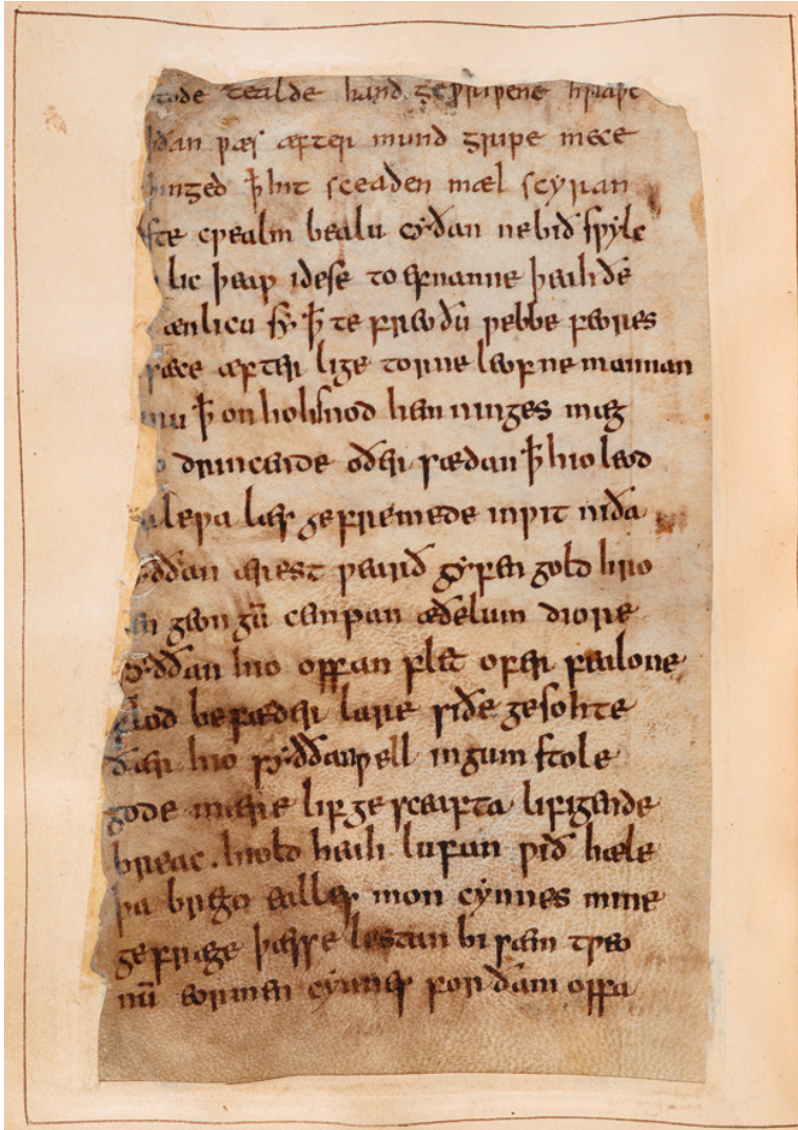 tode tealde hand geƿriþene hraþe
ðan ƿæs æfter mund gripe mece
þinged ꝥ hit sceaden mæl scyran
ste cƿealm bealu cyðan nebið sƿylc
lic þeaƿ idese to efnanne þeah ðe
ænlicu sy ꝥ te freoðu ƿebbe feores
sæce æfter lige torne leofne mannan
ꝥ on hohsnod hemninges mæg
o drincende oðer sædan ꝥ hio leod
aleƿa læs gefremede inƿit niða
yððan ærest ƿearð gyfen gold hro
en geongū cempan æðelum diore
syððan hio offan flet ofer fealone
flod be fæder lare siðe gesohte
ðær hio syððan ƿell ingum stole
gode mære lif gesceafta lifigende
breac . hiold heah lufan ƿið hæle
þa brego ealles mon cynnes mine
gefræge þæs selestan bi sæm tƿeo
nū eormen cynnes for ðam offa